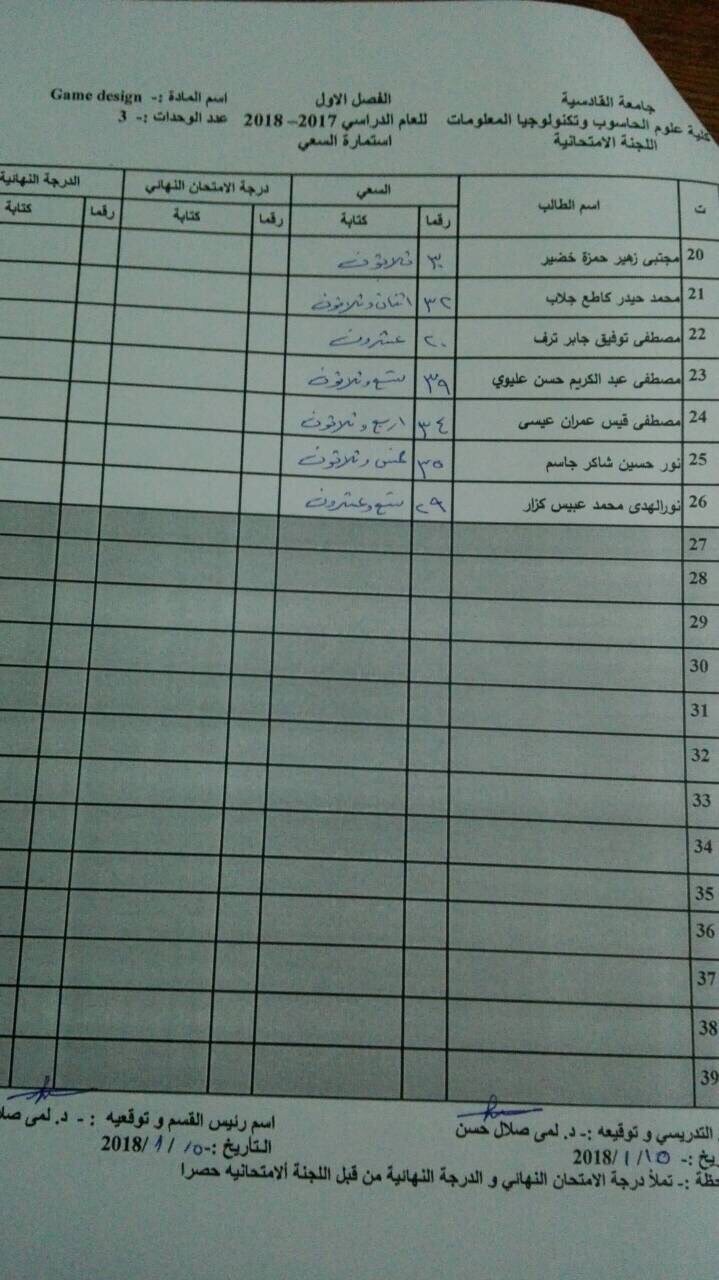 جامعة القادسية
كلية علوم الحاسوب وتكنولوجيا المعلومات
اللجنة الامتحانية
الفصل الاول
للعام الدراسي 2017– 2018
استمارة السعي
اسم المادة :- Game design
عدد الوحدات :- 3
ت اسم الطالب السعي درجة الامتحان النهائي الدرجة النهائية
رقما كتابة رقما كتابة رقما كتابة
20 مجتبى زهير حمزة خضير ٣٠ ثلاثون
21 محمد حيدر كاطع جلاب ٣٢ اثنان وثلاثون
22 مصطفى توفيق جابر ترف ٢٠ عشرون
23 مصطفى عبد الكريم حسن عليوي ٣٩ تسع وثلاثون
24 مصطفى قيس عمران عيسى ٣٤ اربع وثلاثون
25 نور حسين شاكر جاسم ٣٥ خمس وثلاثون
26 نورالهدى محمد عبيس كزار ٢٩ تسع وعشرون
27
28
29
30
31
32
33
34
35
36
37
38
39
التدريسي و توقيعه :- د. لمى صلال حسن
2018/ ١ / ١٥
اسم رئيس القسم و توقعيه :- د. لمى
التأريخ :- ١٥ / ١ /2018
:- تملأ درجة الامتحان النهائي و الدرجة النهائية من قبل اللجنة ألامتحانيه حصرا